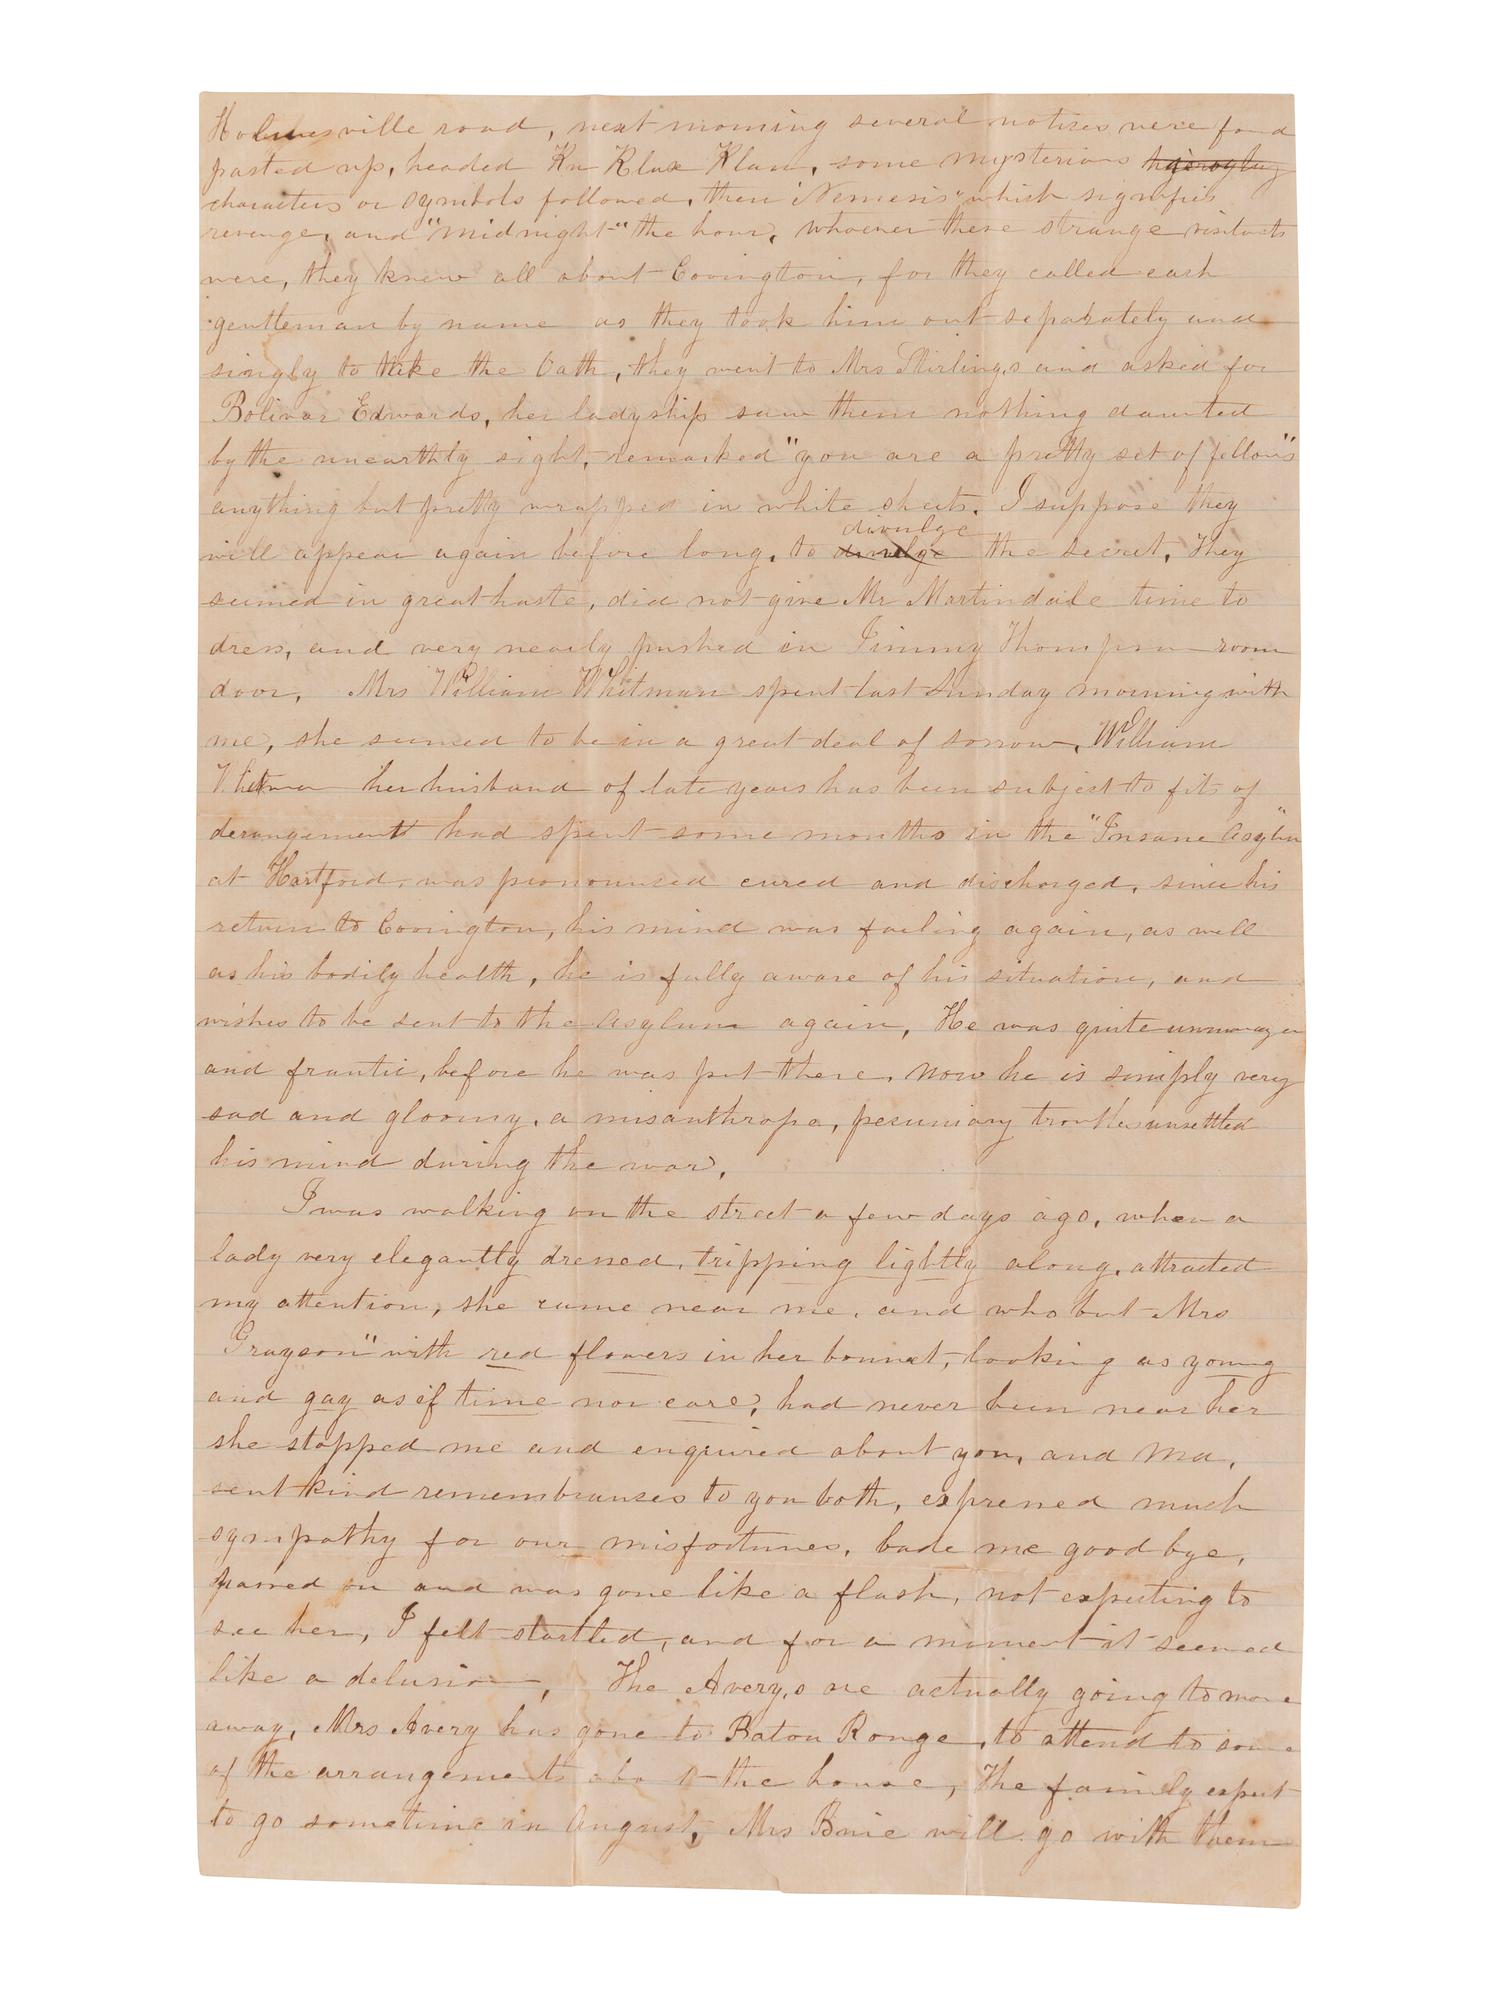 Holmesville road, next morning several notices were found
pasted up, headed Ku Klux Klan, some mysterious
characters or symbols followed, then "Nemesis" which signifies
revenge, and "midnight" the hour, whoever these strange visitants
were, they knew all about Covington, for they called each
gentleman by name as they took him out separately and
singly to take the Oath, they went to Mrs Stirling,s and asked for
Bolivar Edwards, her ladyship saw them nothing daunted
by the unearthly sight, remarked "you are a pretty set of fellows"
anything but pretty wrapped in white sheets. I suppose they
will appear again before long, to divulge the secret, They
seemed in great haste, did not give Mr Martindale time to
dress, and very nearly pushed in Jimmy Thompson room
door, Mrs William Whitman spent last Sunday morning with
me, she seemed to be in a great deal of sorrow, William
Whitman her husband of late years has been subject to fits of
derangement had spent some months in the "Insane Asylum"
at Hartford, was pronounced cured and discharged, since his
return to Covington, his mind was failing again, as well
as his bodily health, he is fully aware of his situation, and
wishes to be sent to the Asylum again, He was quite
and frantic, before he was put there, now he is simply very
sad and gloomy, a misanthrope, pecuniary troubles unsettled
his mind during the war,
I was walking on the street a few days ago, when a
lady very elegantly dressed, tripping lightly along, attracted
my attention, she came near me, and who but Mrs
Grayson" with red flowers in her bonnet, looking as young
and gay as if time nor care, had never been near her
she stopped me and enquired about you, and Ma,
sent kind remembrances to you both, expressed much
sympathy for our misfortunes, bade me good bye,
passed on and was gone like a flash, not expecting to
see her, I felt startled, and for a moment it seemed
like a delusion, The Avery,s are actually going to move
away, Mrs Avery has gone to Baton Rouge, to attend to some
of the arrangements about the house, The family expect
to go sometime in August, Mrs Brie will go with them